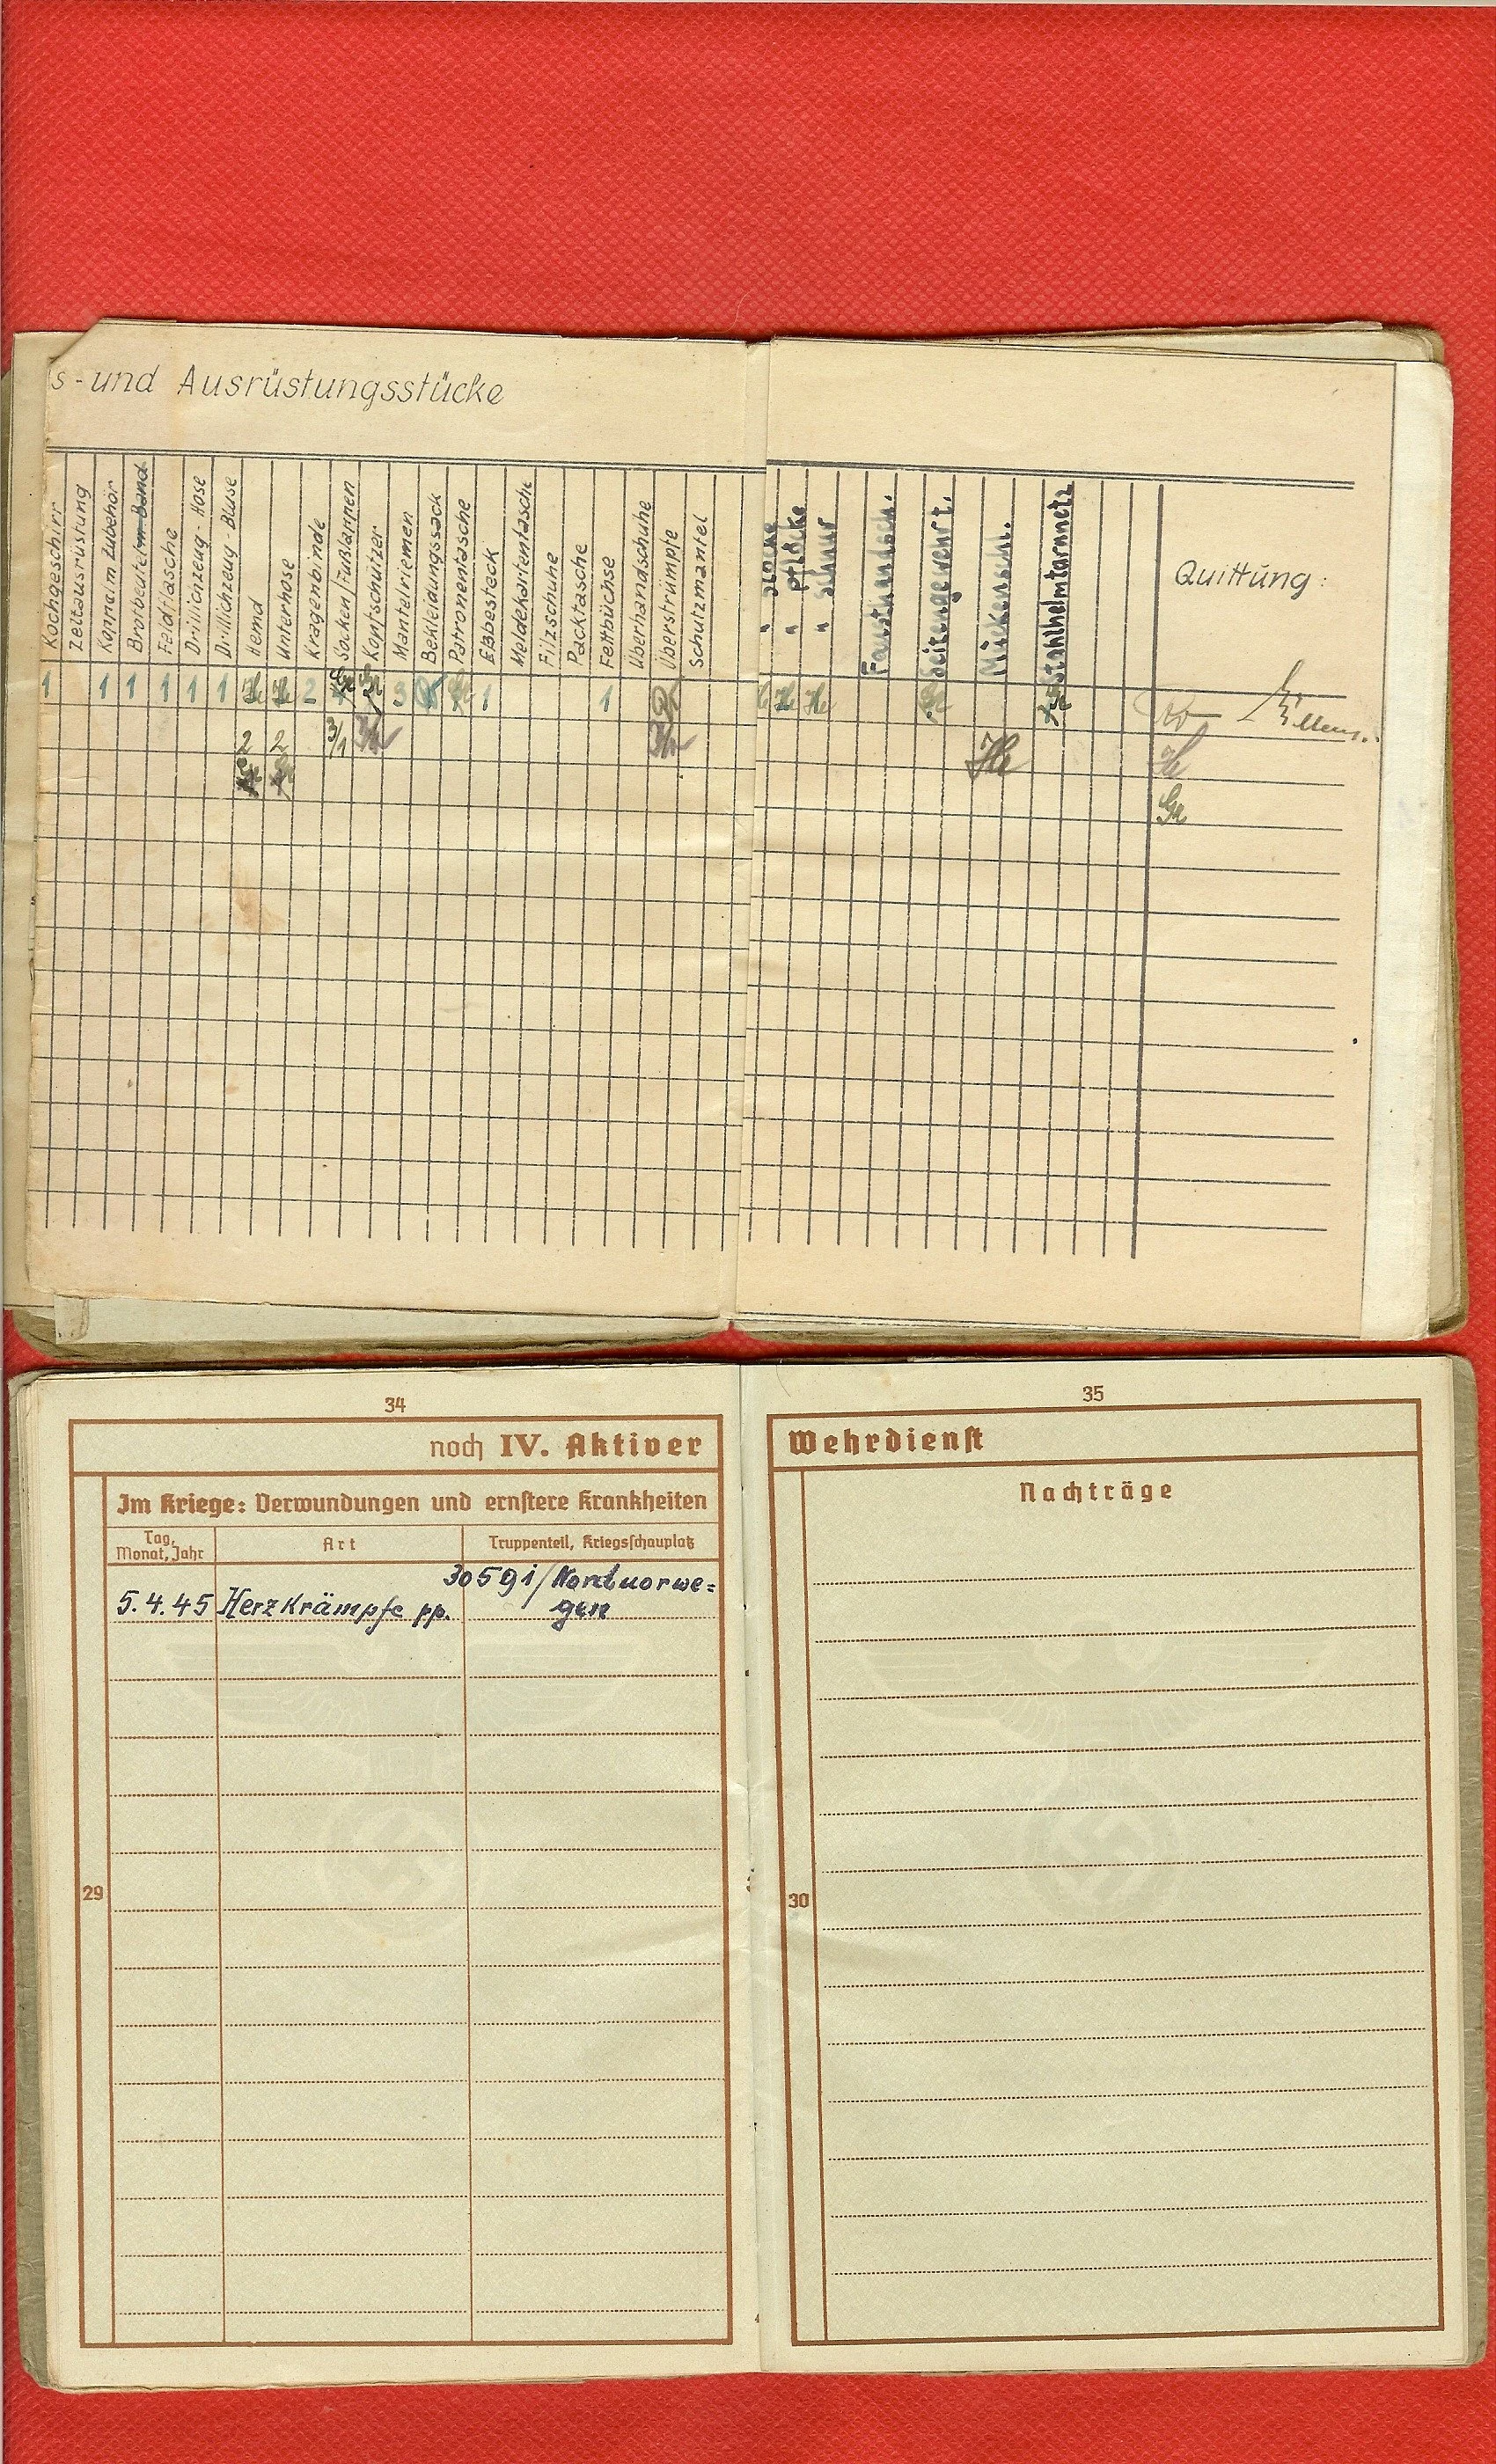 s - und Ausrüstungsstücke
Kochgeschirr
Zeltausrüstung
Koppel m. Zubehör
Brotbeutel m. Band
Feldflasche
Drillichzeug - Hose
Drillichzeug - Bluse
Hemd
Unterhose
Kragenbinde
Socken/Fußlappen
Kopfschützer
Mantelriemen
Bekleidungssack
Patronentasche
Eßbesteck
Meldekartentasche
Filzschuhe
Packtasche
Fettbüchse
Überhandschuhe
Überstrümpfe
Schutzmantel
" pflöcke
" schnur
Fausthandsch.
Seitengewehr t.
Mückensch.
Stahlhelmtarnnetz
Quittung:
1 1 1 1 1 1 He He 2 Gr Gr 3 Gr 1 1 He He Gr Gr
2 2 3/1 He He
Gr
34
noch IV. Aktiver
Im Kriege: Verwundungen und ernstere Krankheiten
Tag, Monat, Jahr
Art
Truppenteil, Kriegsschauplatz
30591/Nordnorwe=
5.4.45 Herzkrämpfe pp. gen
29
35
Wehrdienst
Nachträge
30